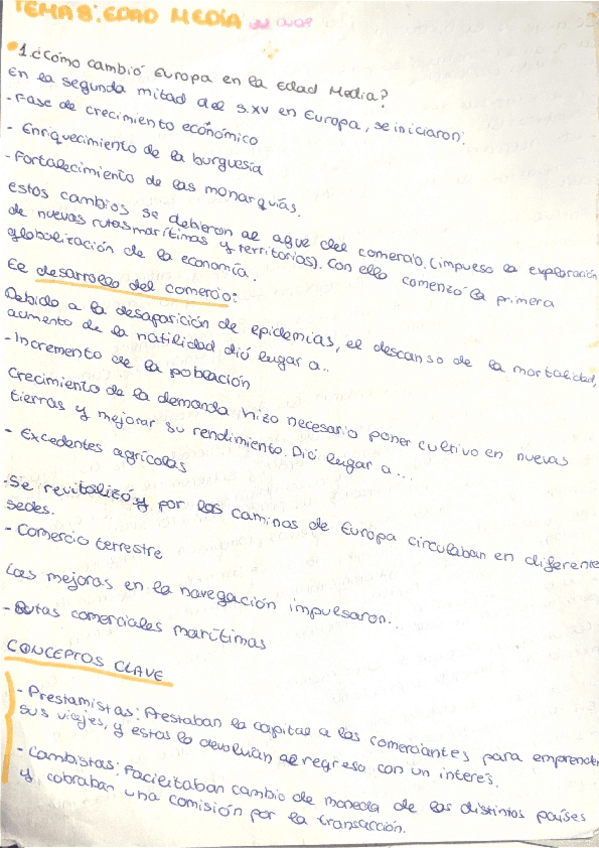 TEMA 8: EDAD MEDIA
1. ¿Cómo cambió Europa en la Edad Media?
En la segunda mitad del s.XV en Europa, se iniciaron:
- Fase de crecimiento económico
- Enriquecimiento de la burguesía
- Fortalecimiento de las monarquías.
estos cambios se debieron al auge del comercio. (impulso la exploración
de nuevas rutas marítimas y territorios). Con ello comenzó la primera
globalización de la economía.
El desarrollo del comercio:
Debido a la desaparición de epidemias, el descanso de la mortalidad,
aumento de la natilidad dió lugar a..
- Incremento de la población
Crecimiento de la demanda hizo necesario poner cultivo en nuevas
tierras y mejorar su rendimiento. Dió lugar a...
- Excedentes agrícolas
- Se revitalizó y por los caminos de Europa circulaban en diferente
sedes.
- Comercio terrestre
Las mejoras en la navegación impulsaron...
- Rutas comerciales marítimas
CONCEPTOS CLAVE
- Prestamistas: Prestaban la capital a los comerciantes para emprender
sus viajes, y estas lo devolvían al regreso con un interés.
- Cambistas: Facilitaban cambio de moneda de los distintos países
y cobraban una comisión por la transacción.